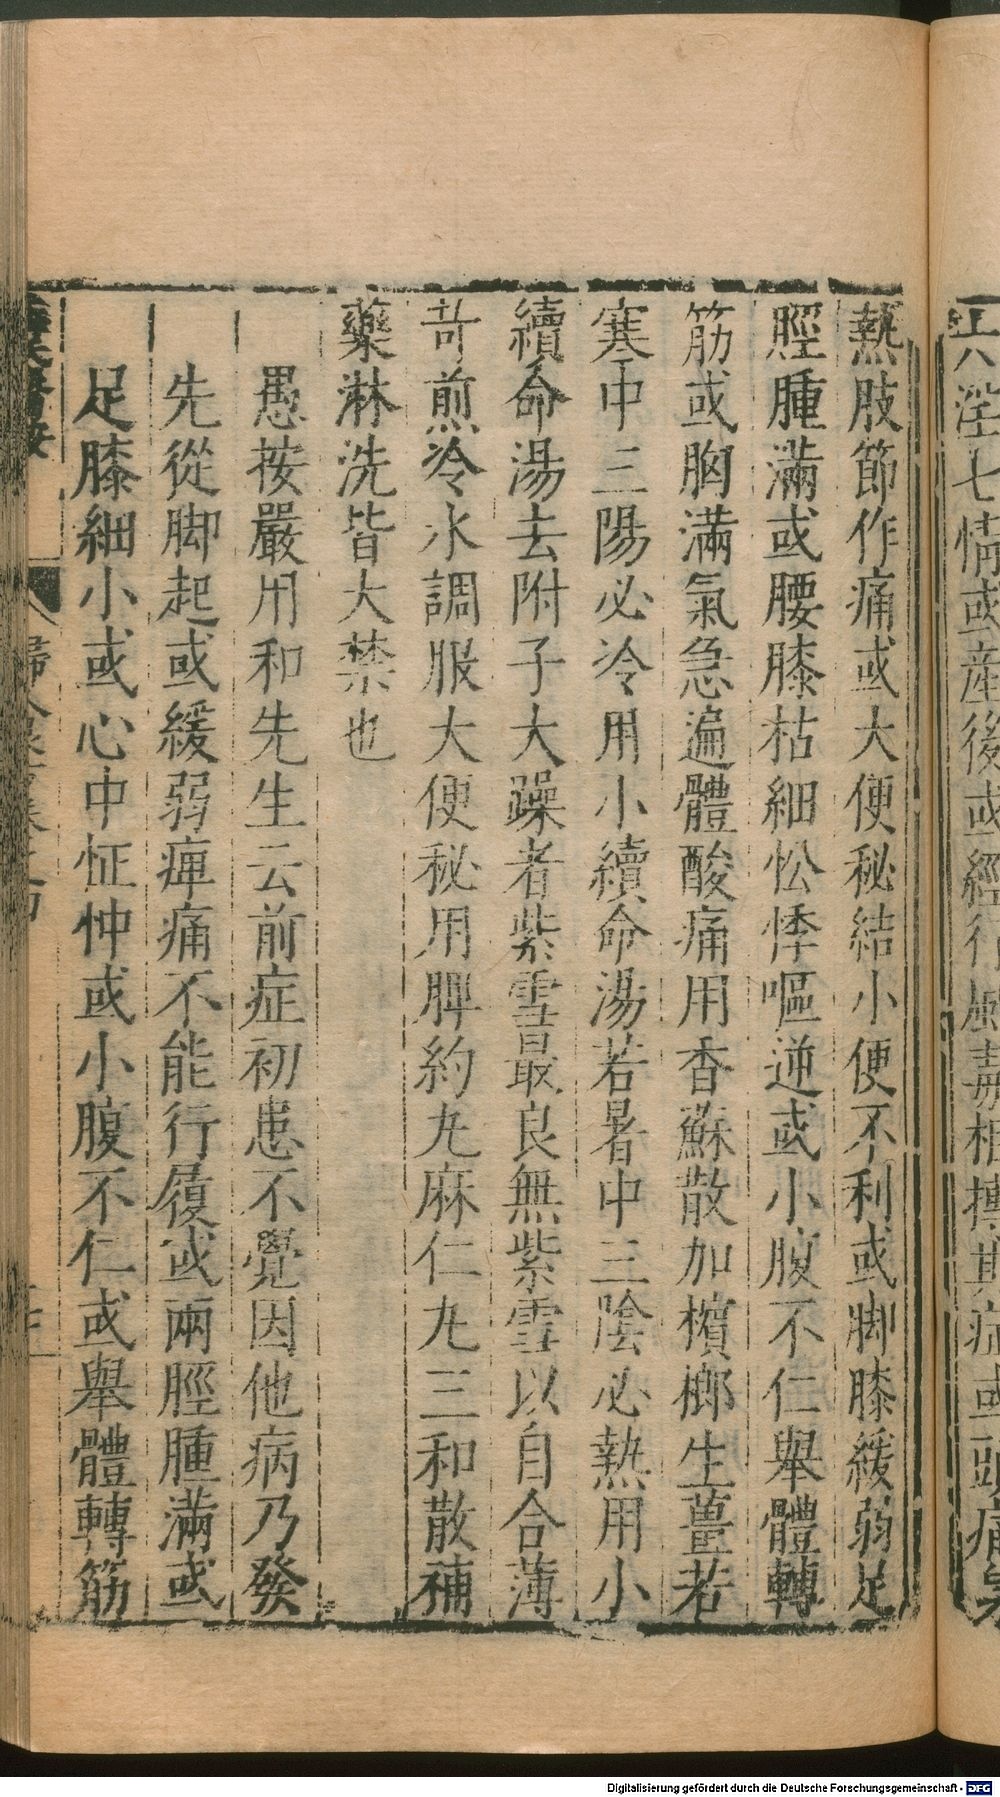 六淫七情或産後或經行風毒相搏其症或頭痛
熱肢節作痛或大便秘結小便不利或脚膝緩弱足
脛腫滿或腰膝枯細忪悸嘔逆或小腹不仁舉體轉
筋或胸滿氣急遍體酸痛用香蘇散加檳榔生薑若
寒中三陽必冷用小續命湯若暑中三陰必熱用小
續命湯去附子大躁者紫雪最良無紫雪以自合薄
荷煎冷水調服大便秘用脾約丸麻仁丸三和散補
藥淋洗皆大禁也
愚按嚴用和先生云前症初患不覺因他病乃發
先從脚起或緩弱痺痛不能行履或兩脛腫滿或
足膝細小或心中怔忡或小腹不仁或舉體轉筋
薛氏醫按 婦人良方卷之四
Digitalisierung gefördert durch die Deutsche Forschungsgemeinschaft - DFG